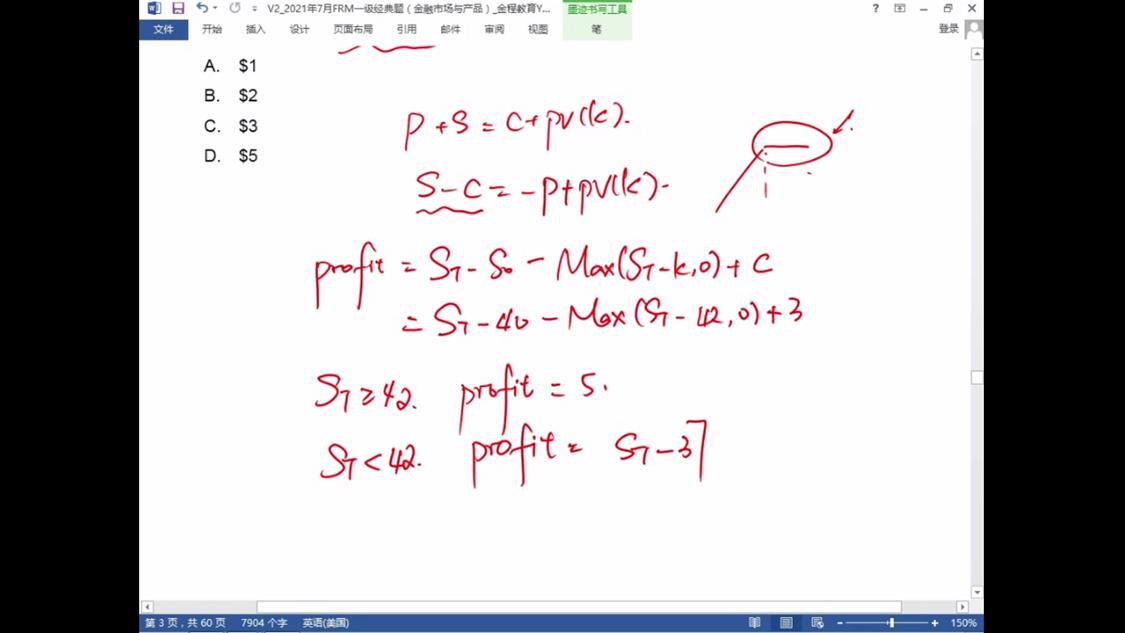 V2_2021年7月FRM一级经典题（金融市场与产品）_金程教育Y...
墨迹书写工具
文件 开始 插入 设计 页面布局 引用 邮件 审阅 视图 笔 登录
A. $1
B. $2
C. $3
D. $5
P+S=C+PV(K).
S-C=-P+PV(K).
profit = ST-S0-Max(ST-K,0)+C
= ST-40-Max(ST-42,0)+3
ST≥42. profit = 5.
ST<42. profit = ST-37
第 3 页，共 60 页 7904 个字 英语(美国) 150%